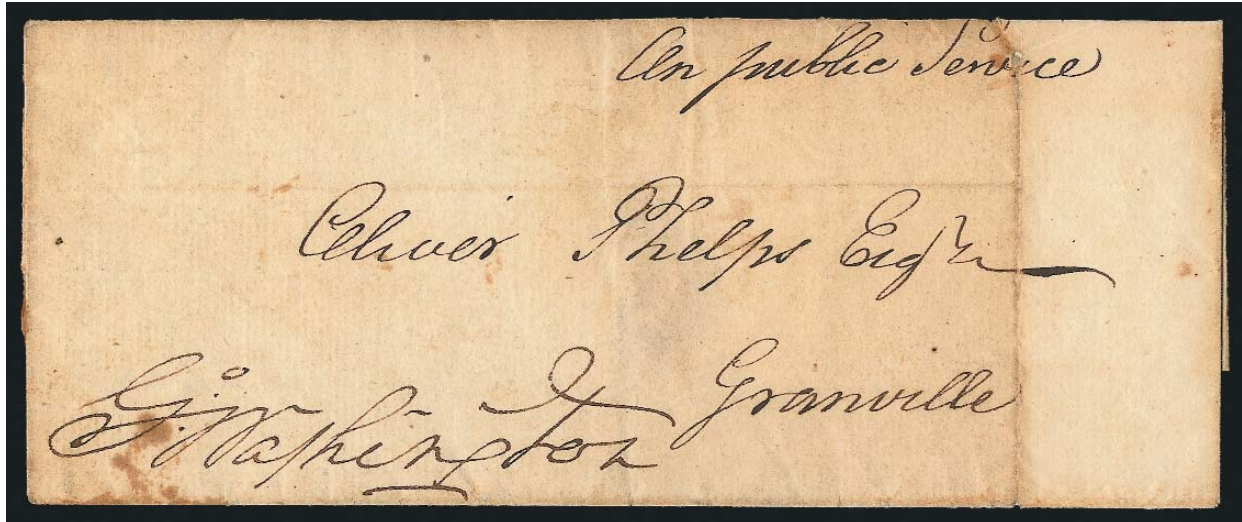 On public Service
Oliver Phelps Esqr
Granville
G:Washington